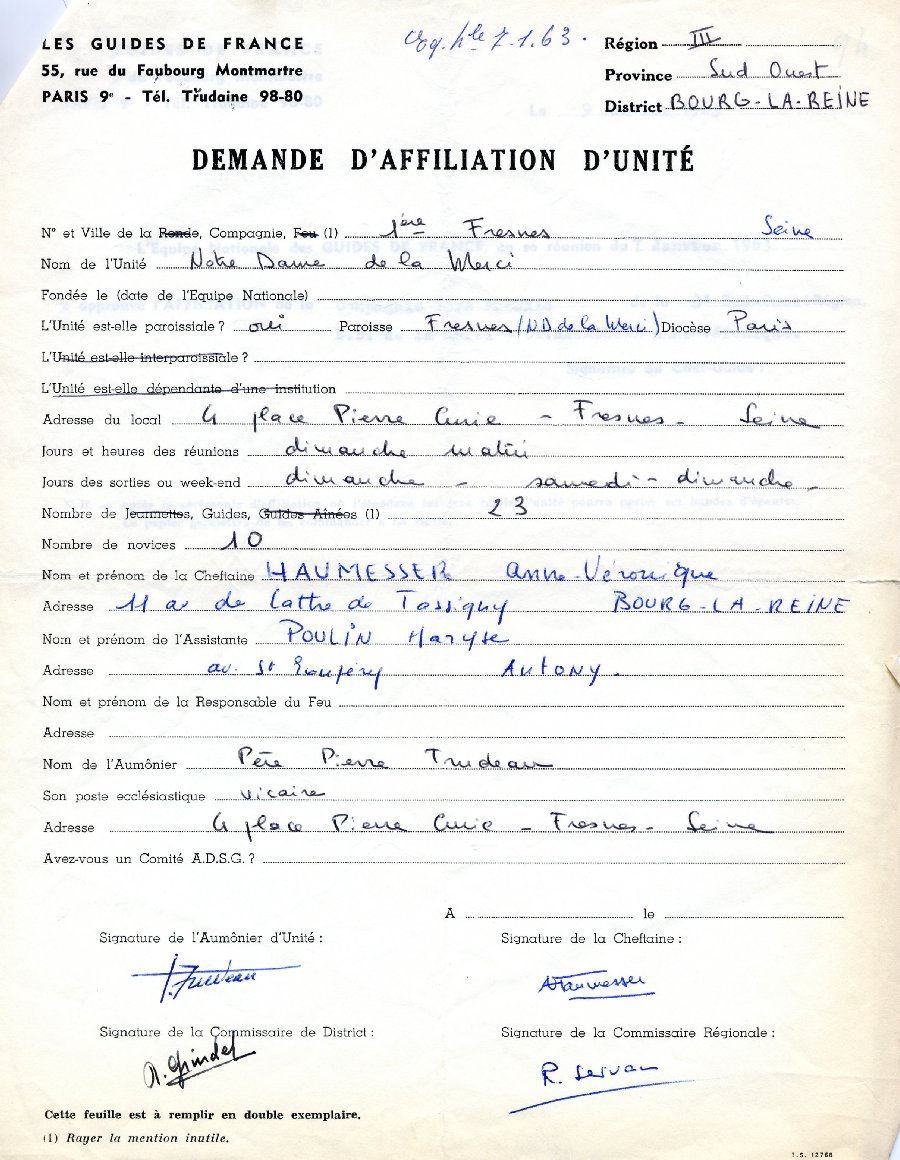 LES GUIDES DE FRANCE
55, rue du Faubourg Montmartre
PARIS 9e - Tél. Trudaine 98-80
7.1.63.
Région III
Province Sud Ouest
District BOURG-LA-REINE
DEMANDE D'AFFILIATION D'UNITÉ
N° et Ville de la Ronde, Compagnie, Feu (1) 1ère Fresnes Seine
Nom de l'Unité Notre Dame de la Merci
Fondée le (date de l'Equipe Nationale)
L'Unité est-elle paroissiale ? oui Paroisse Fresnes (ND de la Merci) Diocèse Paris
L'Unité est-elle interparoissiale ?
L'Unité est-elle dépendante d'une institution
Adresse du local 4 place Pierre Curie - Fresnes - Seine
Jours et heures des réunions dimanche matin
Jours des sorties ou week-end dimanche - samedi - dimanche -
Nombre de Jeannettes, Guides, Guides Aînées (1) 23
Nombre de novices 10
Nom et prénom de la Cheftaine HAUMESSER Anne-Véronique
Adresse 11 av de Lattre de Tassigny BOURG-LA-REINE
Nom et prénom de l'Assistante POULIN Maryse
Adresse av. St Exupéry ANTONY.
Nom et prénom de la Responsable du Feu
Adresse
Nom de l'Aumônier Père Pierre Trudeau
Son poste ecclésiastique vicaire
Adresse 4 place Pierre Curie - Fresnes - Seine
Avez-vous un Comité A.D.S.G. ?
A le
Signature de l'Aumônier d'Unité :
Signature de la Cheftaine :
P. Trudeau
AHaumesser
Signature de la Commissaire de District :
Signature de la Commissaire Régionale :
R. Servan
Cette feuille est à remplir en double exemplaire.
(1) Rayer la mention inutile.
I.S. 12768